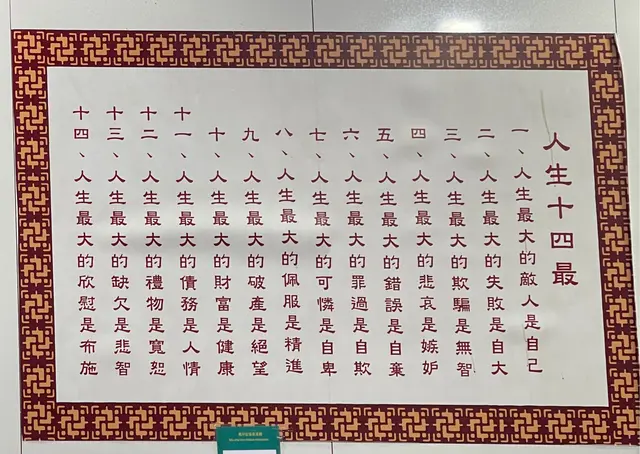 人生十四最
一、人生最大的敵人是自己
二、人生最大的失敗是自大
三、人生最大的欺騙是無智
四、人生最大的悲哀是嫉妒
五、人生最大的錯誤是自棄
六、人生最大的罪過是自欺
七、人生最大的可憐是自卑
八、人生最大的佩服是精進
九、人生最大的破產是絕望
十、人生最大的財富是健康
十一、人生最大的債務是人情
十二、人生最大的禮物是寬恕
十三、人生最大的缺欠是悲智
十四、人生最大的欣慰是布施